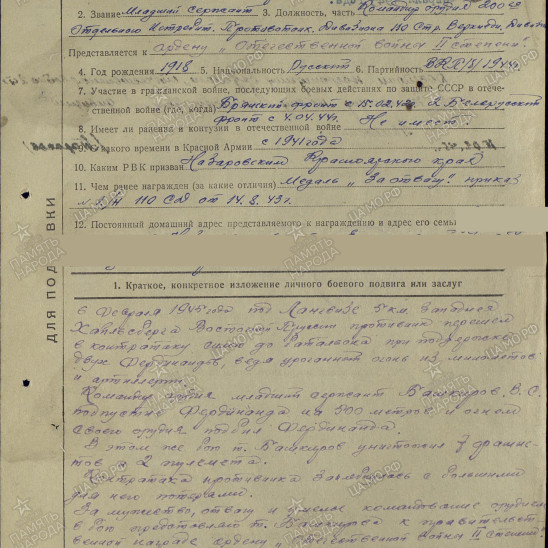 2. Звание Младший сержант 3. Должность, часть Командир орудия 200го
Отдельного Истребит. Противотанк. Дивизиона 110 Стр. Верхнедн. Дивиз
Представляется к ордену „Отечественной войны II степени“.
4. Год рождения 1918 5. Национальность Русский 6. Партийность ВКП(б) 1944г
7. Участие в гражданской войне, последующих боевых действиях по защите СССР в отече-
ственной войне (где, когда) Брянский фронт с 15.02.43г 2 Белорусский
фронт с 4.04.44г.
8. Имеет ли ранения и контузии в отечественной войне Не имеет.
времени в Красной Армии с 1941 года
10. Каким РВК призван Назаровским Красноярского края
11. Чем ранее награжден (за какие отличия) Медаль „За отвагу“ приказ
110 СД от 14.8.43г.
12. Постоянный домашний адрес представляемого к награждению и адрес его семьи
ДЛЯ ПОД ВКИ
1. Краткое, конкретное изложение личного боевого подвига или заслуг
6 февраля 1945 года под 5 км. западнее
Восточной Пруссии противник перешел
в контратаку силой до батальона при поддержке
двух Фердинандов, ведя ураганный огонь из минометов
и артиллерии.
Командир орудия младший сержант Башкиров В. С.
подпустив Фердинанда на 500 метров и огнем
своего орудия подбил Фердинанда.
В этом же бою т. Башкиров уничтожил 7 фашис-
тов и 2 пулемета.
Контратака противника захлебнулась с большими
для него потерями.
За мужество, отвагу и умелое командование орудием
в бою представляю т. Башкирова к правительст-
венной награде ордену „Отечественной войны II степени“
ПАМЯТЬ НАРОДА
ЦАМО.РФ